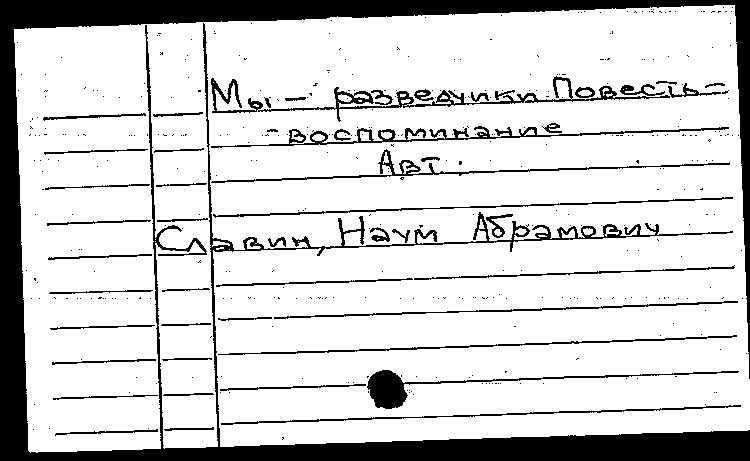 Мы — разведчики Повесть-
-воспоминание
Авт.:
Славин, Наум Абрамович